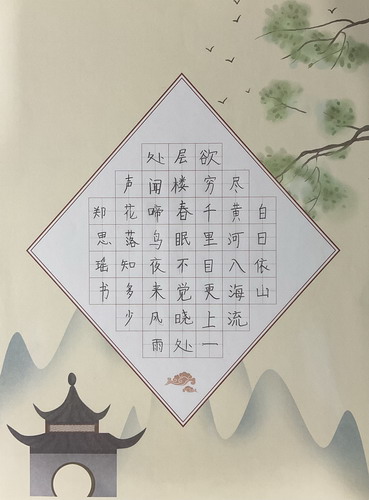 白日依山
尽黄河入海流
欲穷千里目更上一
层楼春眠不觉晓处
处闻啼鸟夜来风雨
声花落知多少
郑思瑶书